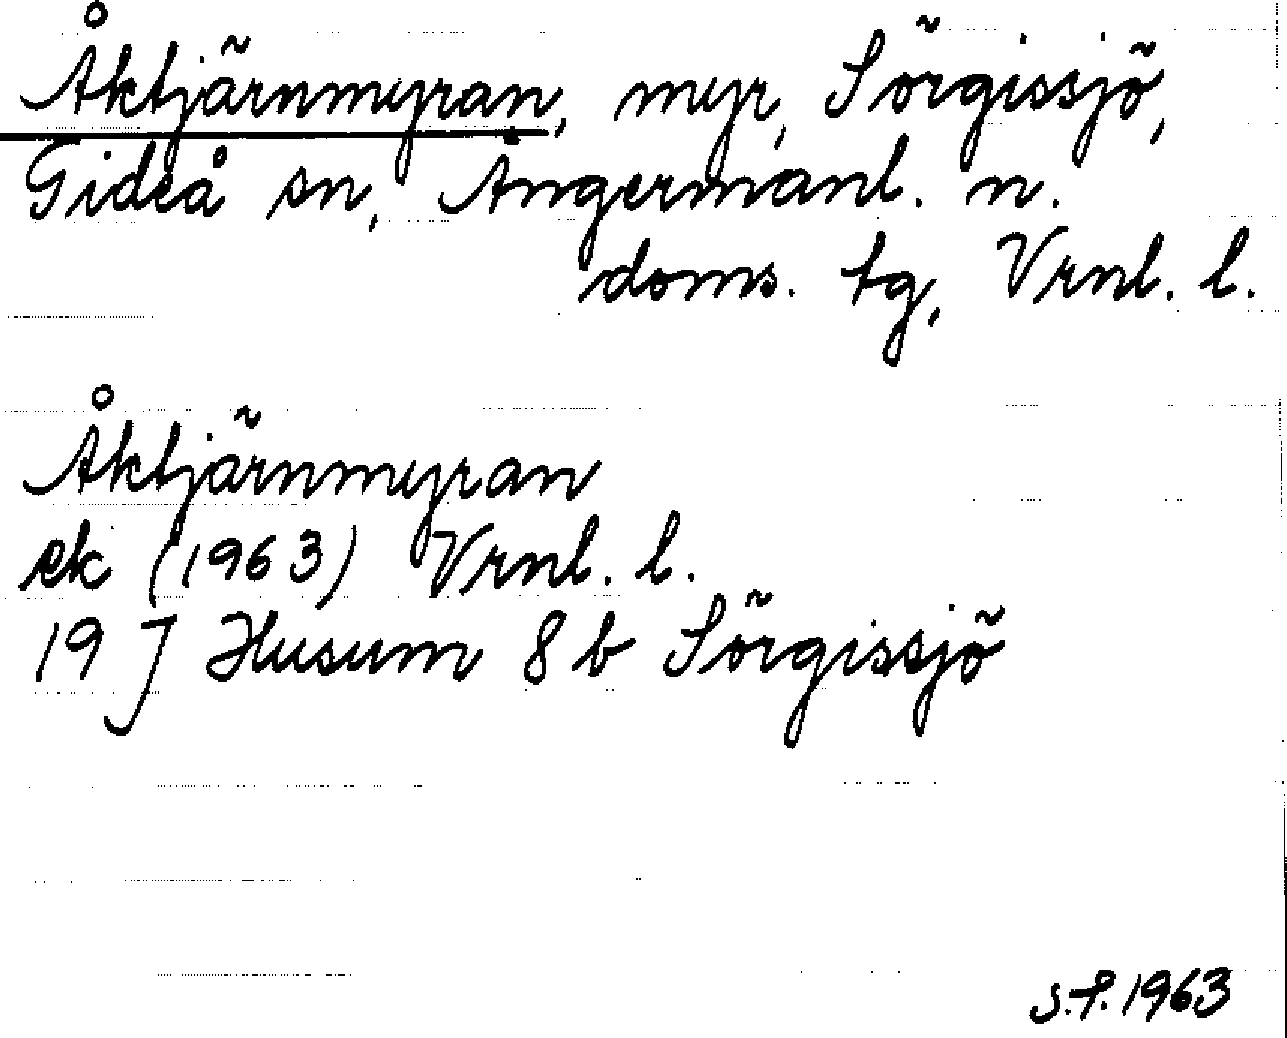 Åktjärnmyran, myr, Sörgissjö,
Gideå sn, Ångermanl. n.
doms. tg, Vrnl. l.
Åktjärnmyran
ek (1963) Vrnl. l.
19 J Husum 8 b Sörgissjö
S.F. 1963